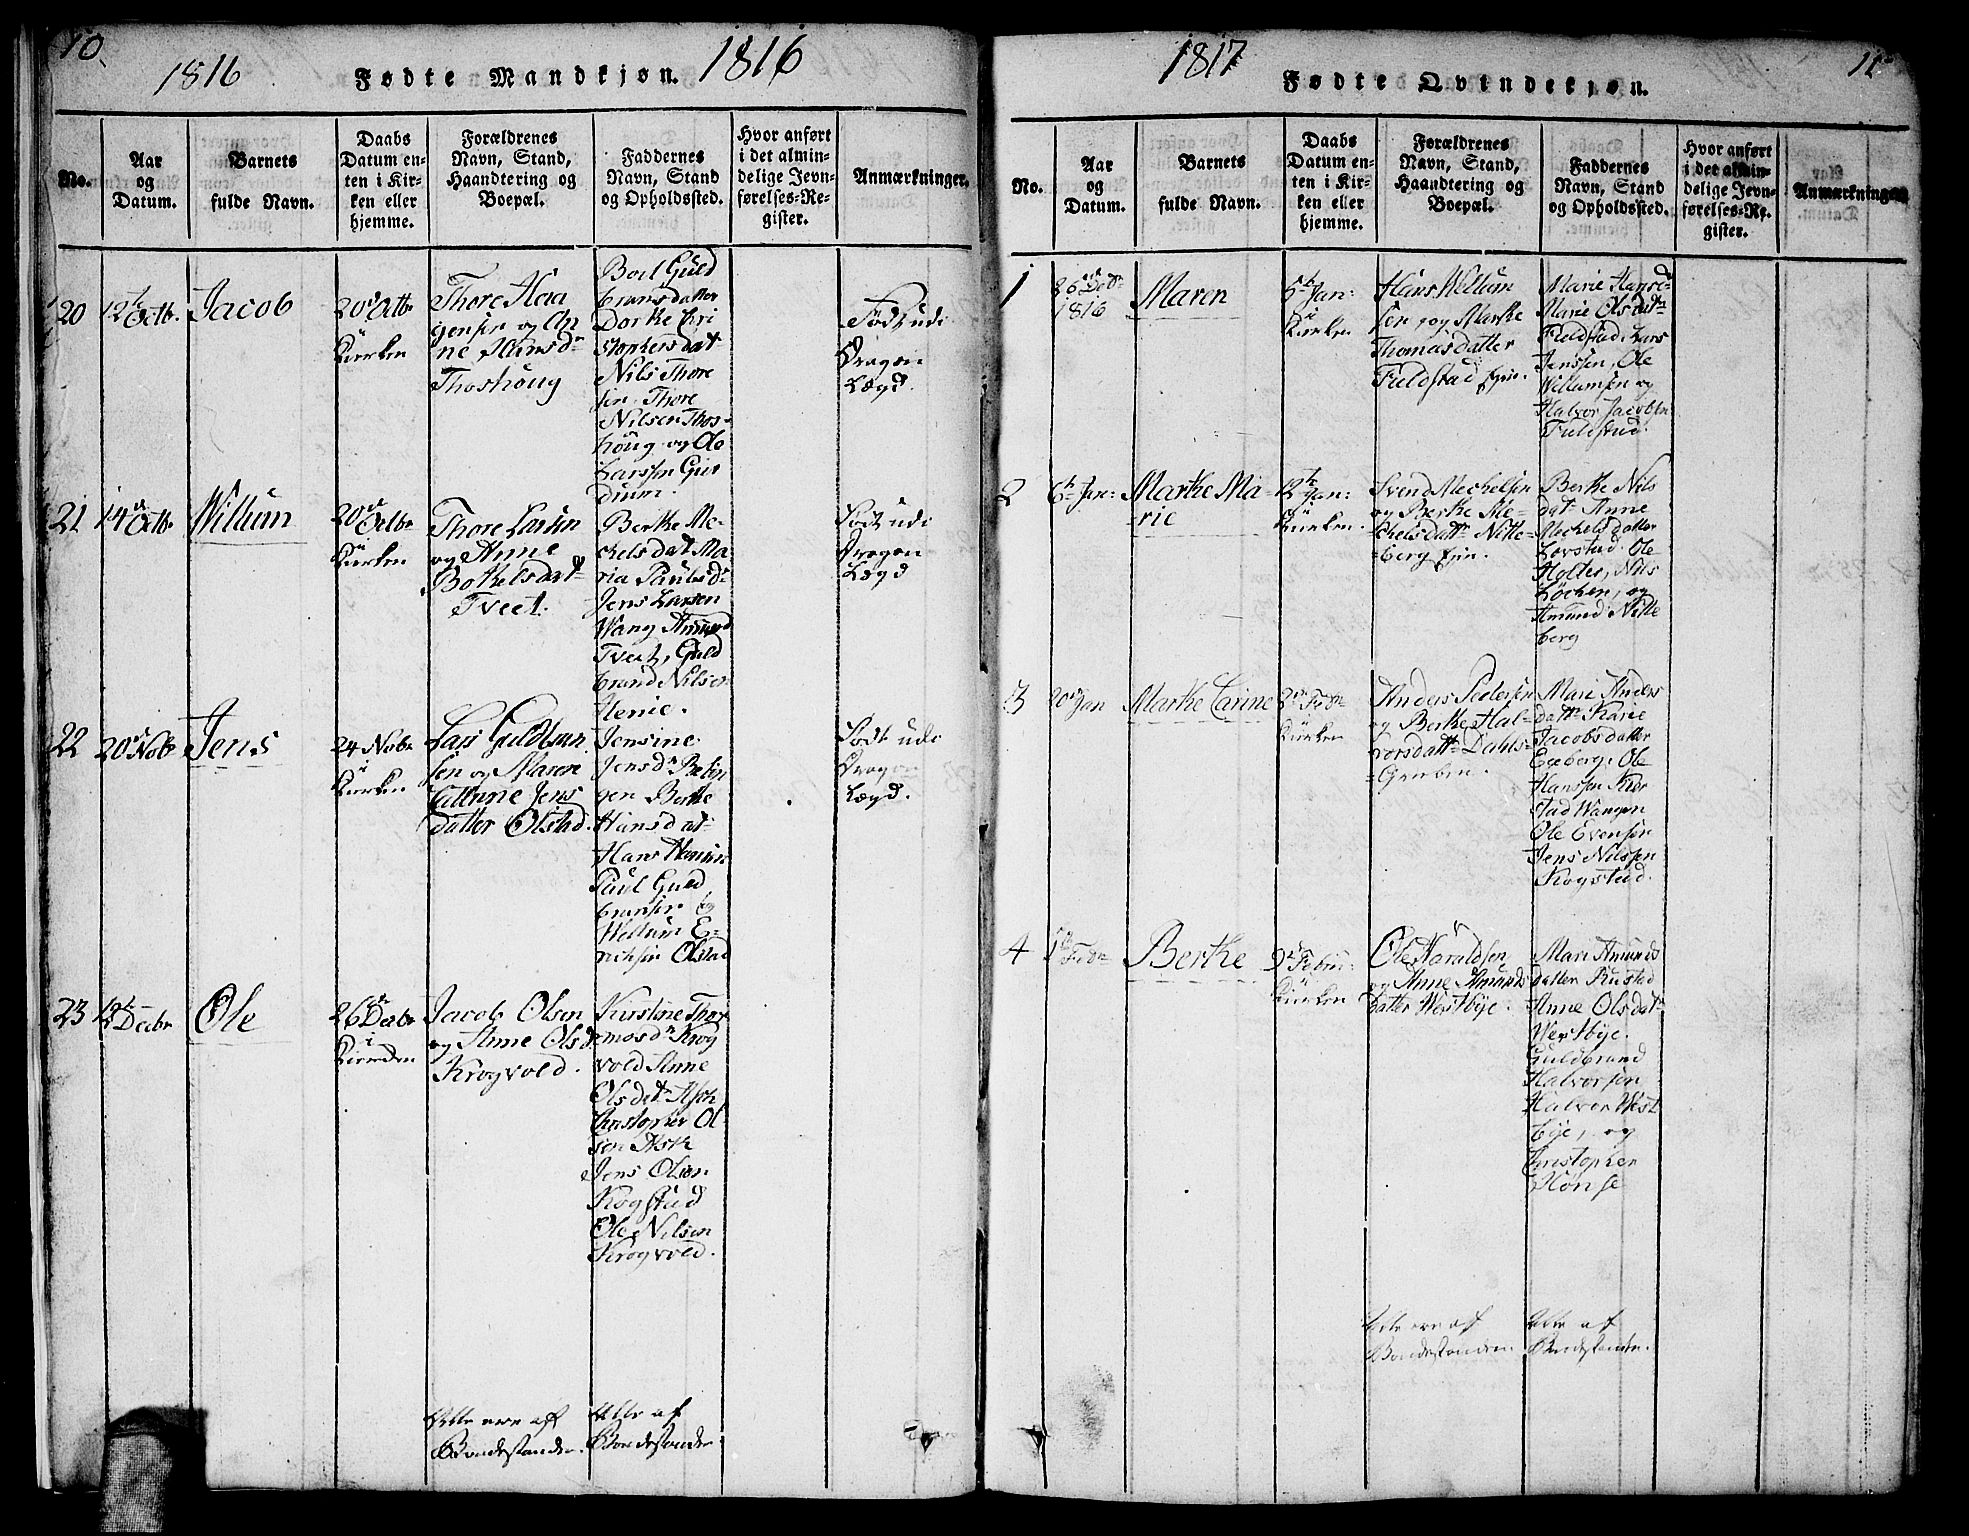 10.
1816
Fødte Mandkjøn.
1816
No.
Aar
og
Datum.
Barnets
fulde Navn.
Daabs
Datum en-
ten i Kir-
ken eller
hjemme.
Forældrenes
Navn, Stand,
Haandtering og
Boepæl.
Faddernes
Navn, Stand
og Opholdssted.
Hvor anført
i det almin-
delige Jevn-
førelses-Re-
gister.
Anmærkninger.
20
12te Octb.
Jacob
20de Octbr
i
Kierken
Thore Haa
gensen og An
ne Hansdr
Thoshoug
Boel Guld
bransdatter
Dorke Chri
stophersdat
Nils Thore
sen, Thore
Nilsen Thos-
houg og Ole
Larssen Gul
dium.
Født udi
Dragon
Lægd.
21
14de Octb
Willum
20de Octbr
i
Kierken
Thore Larsen
og Anne
Bothelsdat-
Tveet.
Berthe Me-
chelsdat Ma
ria Paulsdr
Jens Larsen
Wang Amund
Tveet, Guld
brand Nilsen
Henie.
Født udi
Dragon
Lægd
22
20de Nobr
Jens
24 Nobr
i
Kierken
Lars Guldbran
sen og Maren
Cathrine Jens
datter Olstad.
Jensine
Jensdr
gen Berthe
Hansdat-
Hans Hansen
Paul Guld
bransen og
Willum E-
richsen Olstad
Født udi
Dragon
Lægd.
23
12te Decbr
Ole
26de Decbr
i
Kierken
Jacob Olsen
og Anne Olsdr
Krogvold.
Kirstine Thor
mosdr Krog
vold Anne
Olsdatr Ask
Christopher Ol
sen Ask
Jens Olsen
Kogstad
Ole Nilsen
Krogvold.
Alle ere af
Bondestanden.
Alle af
Bondestanden
1817
Fødte Qvindekjøn.
11
No.
Aar
og
Datum.
Barnets
fulde Navn.
Daabs
Datum en-
ten i Kir-
ken eller
hjemme.
Forældrenes
Navn, Stand,
Haandtering og
Boepæl.
Faddernes
Navn, Stand
og Opholdssted.
Hvor anført
i det almin-
delige Jevn-
førelses-Re-
gister.
Anmærkninger
1
26de Decbr
1816
Maren
5te Jan:
i
Kierken
Hans Willum
sen, og Marthe
Thomasdatter
Fuldstad Eyer.
Marie Hansd
Marie Olsdatr
Fieldstad, Lars
Jenssen, Ole
Willumsen og
Halvor Jacobsen
Fuldstad.
2
6te Jan:
Marthe Ma-
rie
12te Jan:
i
Kierken.
Svend Mechelsen
og Berthe Me-
chelsdattr Nitte-
berg Eyer.
Berthe Nils
datr Anne
Mechelsdatter
Lovstad. Ole
Holter, Nils
Løchen, og
Amund Nitte
berg
3
20de Jan
Marthe Carine
2den Febr
i
Kierken
Anders Pedersen
og Berthe Hal-
vorsdattr Dahls-
Gruben.
Mari Anders
dattr Karie
Jacobsdatter
Egeberg, Ole
Hanssen Kier
stad Wangen
Ole Evensen
Jens Nilssen
Kogstad.
4
1ste Febr
Berthe
9de Febru:
i
Kierken
Ole Haraldsen
og Anne Amunds
datter Westbye.
Mari Amunds
datter Rustad
Anne Olsdatr
Westbye.
Guldbrand
Halvorsen
Halvor West
bye, og
Christopher
Hønse
Alle ere af
Bondestanden.
Alle af
Bondestanden.